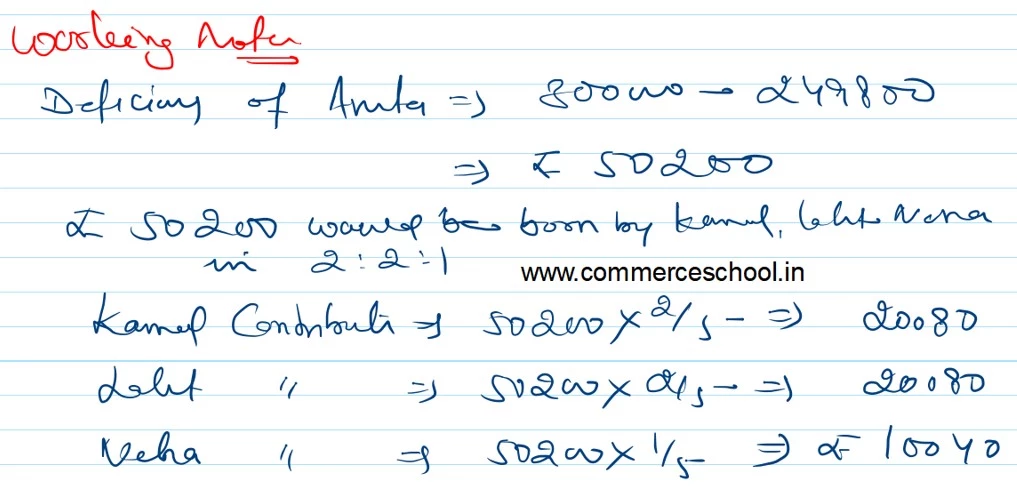 Working Notes
Deficiency of Anita ⇒ 300000 - 249800
⇒ ₹ 50200
₹ 50200 would be born by Kamal, Lalit Neha
in 2:2:1
www.commerceschool.in
Kamal Contributi ⇒ 50200 × 2/5 - ⇒ 20080
Lalit " ⇒ 50200 × 2/5 - ⇒ 20080
Neha " ⇒ 50200 × 1/5 ⇒ ₹ 10040